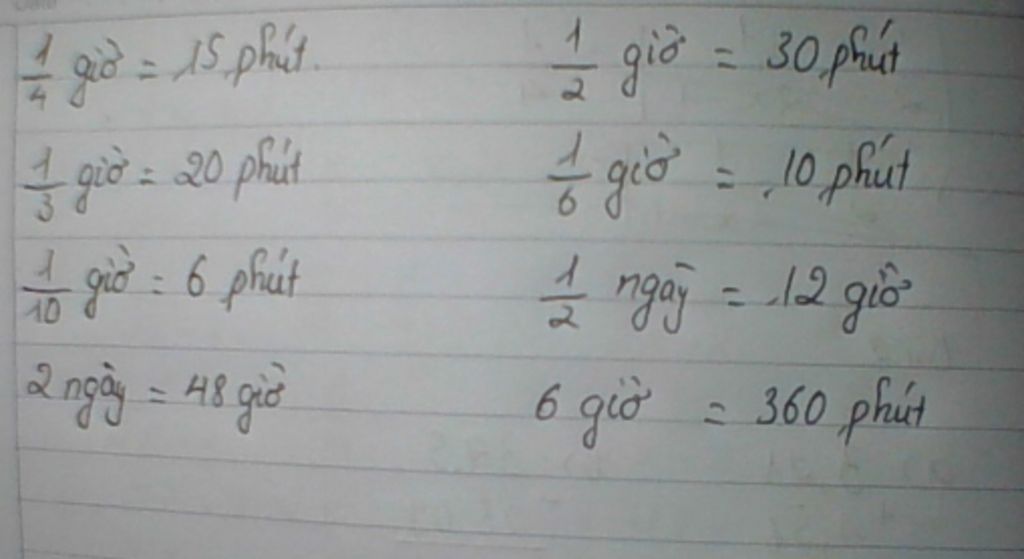 1/4 giờ = 15 phút. 1/2 giờ = 30 phút
1/3 giờ = 20 phút 1/6 giờ = 10 phút
1/10 giờ = 6 phút 1/2 ngày = 12 giờ
2 ngày = 48 giờ 6 giờ = 360 phút